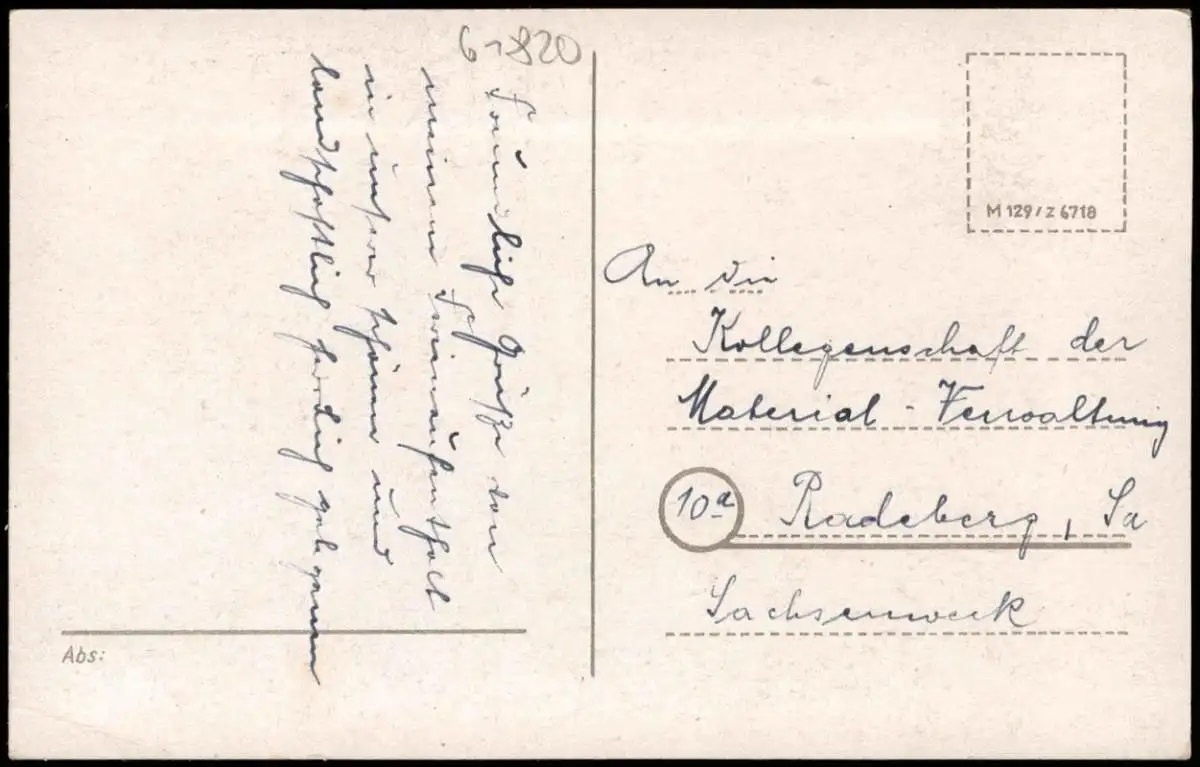 6-820
Freundliche Grüße von
meinem Ferienaufenthalt
in unserer schönen und
landschaftlich herrlich gelegenen
M 129 / Z 6718
An die
Kollegenschaft der
Material-Verwaltung
10a Radeberg, Sa
Sachsenwerk
Abs: